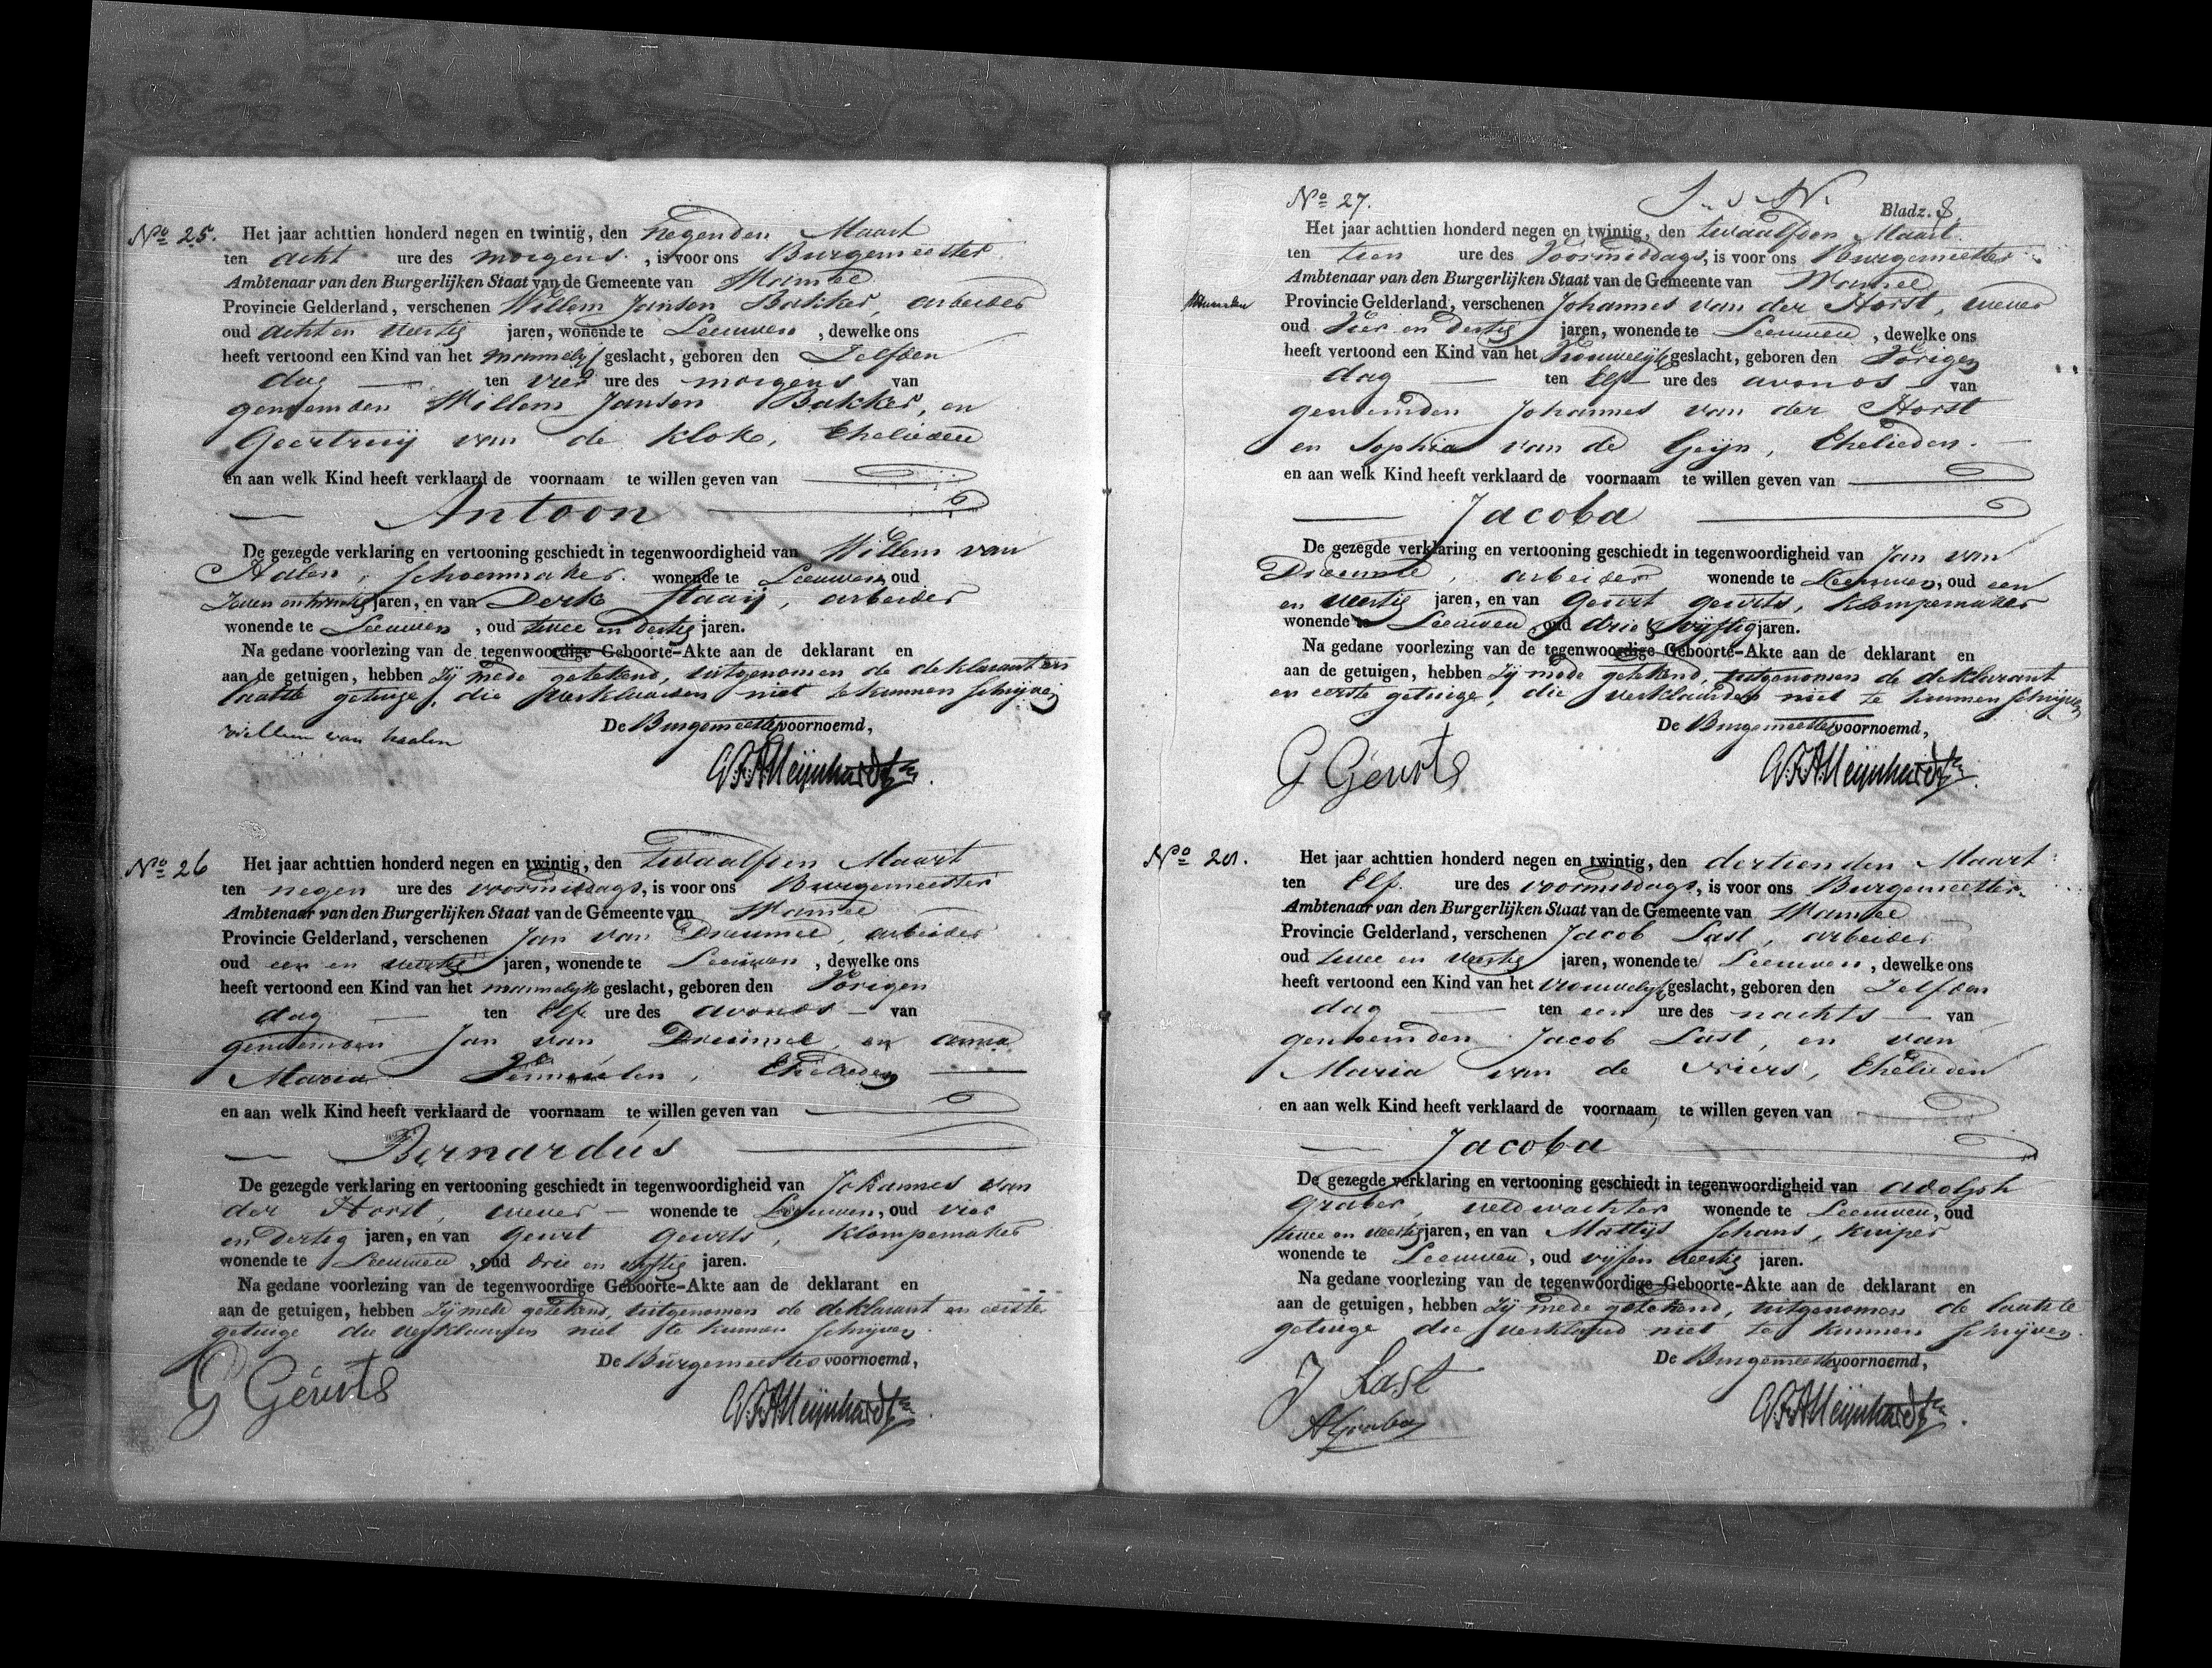 No 25. Het jaar achttien honderd negen en twintig, den negenden Maart
ten acht ure des morgens, is voor ons Burgemeester
Ambtenaar van den Burgerlijken Staat van de Gemeente van Wamel
Provincie Gelderland, verschenen Willem Jansen Bakker, arbeider
oud acht en veertig jaren, wonende te Leeuwen, dewelke ons
heeft vertoond een Kind van het mannelijk geslacht, geboren den zelfden
dag — ten vier ure des morgens van
genoemden Willem Jansen Bakker, en
Geertruij van de Klok, Ehelieden
en aan welk Kind heeft verklaard de voornaam te willen geven van
— Antoon —
De gezegde verklaring en vertooning geschiedt in tegenwoordigheid van Willem van
Halen, schoenmaker. wonende te Leeuwen, oud
zeven en twintig jaren, en van Derk Staaij, arbeider
wonende te Leeuwen, oud twee en dertig jaren.
Na gedane voorlezing van de tegenwoordige Geboorte-Akte aan de deklarant en
aan de getuigen, hebben zij mede getekend, uitgenomen de deklarant en
laatste getuige, die verklaarden niet te kunnen schrijven
De Burgemeester voornoemd,
willem van haalen
G.F.A. Meijnhardt
No 26 Het jaar achttien honderd negen en twintig, den twaalfden Maart
ten negen ure des voormiddags, is voor ons Burgemeester
Ambtenaar van den Burgerlijken Staat van de Gemeente van Wamel
Provincie Gelderland, verschenen Jan van Dreumel, arbeider
oud een en veertig jaren, wonende te Leeuwen, dewelke ons
heeft vertoond een Kind van het mannelijk geslacht, geboren den Vorigen
dag — ten Elf ure des avonds — van
genoemden Jan van Dreumel, en anna
Maria Vermeulen, Ehelieden —
en aan welk Kind heeft verklaard de voornaam te willen geven van
— Bernardus —
De gezegde verklaring en vertooning geschiedt in tegenwoordigheid van Johannes van
der Horst, wever — wonende te Leeuwen, oud vier
en dertig jaren, en van Geurt Geurts, Klompemaker
wonende te Leeuwen, oud drie en vijftig jaren.
Na gedane voorlezing van de tegenwoordige Geboorte-Akte aan de deklarant en
aan de getuigen, hebben zij mede getekend, uitgenomen de deklarant en eerste
getuige die verklaarden niet te kunnen schrijven
De Burgemeester voornoemd,
G Geurts
G.F.A. Meijnhardt
Bladz. 8
No 27.
Het jaar achttien honderd negen en twintig, den twaalfden Maart
ten tien ure des Voormiddags, is voor ons Burgemeester
Ambtenaar van den Burgerlijken Staat van de Gemeente van Wamel
Provincie Gelderland, verschenen Johannes van der Horst, wever
oud Vier en dertig jaren, wonende te Leeuwen, dewelke ons
heeft vertoond een Kind van het Vrouwelijk geslacht, geboren den Vorigen
dag — ten Elf ure des avonds — van
genoemden Johannes van der Horst
en Sophia van de Geijn, Ehelieden. —
en aan welk Kind heeft verklaard de voornaam te willen geven van
— Jacoba —
De gezegde verklaring en vertooning geschiedt in tegenwoordigheid van Jan van
Dreumel, arbeider wonende te Leeuwen, oud een
en veertig jaren, en van Geurt Geurts, Klompemaker
wonende te Leeuwen, oud drie & vijftig jaren.
Na gedane voorlezing van de tegenwoordige Geboorte-Akte aan de deklarant en
aan de getuigen, hebben zij mede getekend, uitgenomen de deklarant
en eerste getuige, die verklaarden niet te kunnen schrijven
De Burgemeester voornoemd,
G Geurts
G.F.A. Meijnhardt
No 28. Het jaar achttien honderd negen en twintig, den dertienden Maart
ten Elf. ure des voormiddags, is voor ons Burgemeester
Ambtenaar van den Burgerlijken Staat van de Gemeente van Wamel
Provincie Gelderland, verschenen Jacob Last, arbeider
oud twee en veertig jaren, wonende te Leeuwen, dewelke ons
heeft vertoond een Kind van het vrouwelijk geslacht, geboren den zelfden
dag — ten een ure des nachts — van
genoemden Jacob Last, en van
Maria van de Wiers, Ehelieden
en aan welk Kind heeft verklaard de voornaam, te willen geven van
— Jacoba —
De gezegde verklaring en vertooning geschiedt in tegenwoordigheid van adolph
Graber, veldwachter wonende te Leeuwen, oud
twee en veertig jaren, en van Mattijs Schans, kuiper
wonende te Leeuwen, oud vijf en veertig jaren.
Na gedane voorlezing van de tegenwoordige Geboorte-Akte aan de deklarant en
aan de getuigen, hebben zij mede getekend, uitgenomen de laatste
getuige die verklaard niet te kunnen schrijven.
De Burgemeester voornoemd,
J Last
AGraber
G.F.A. Meijnhardt